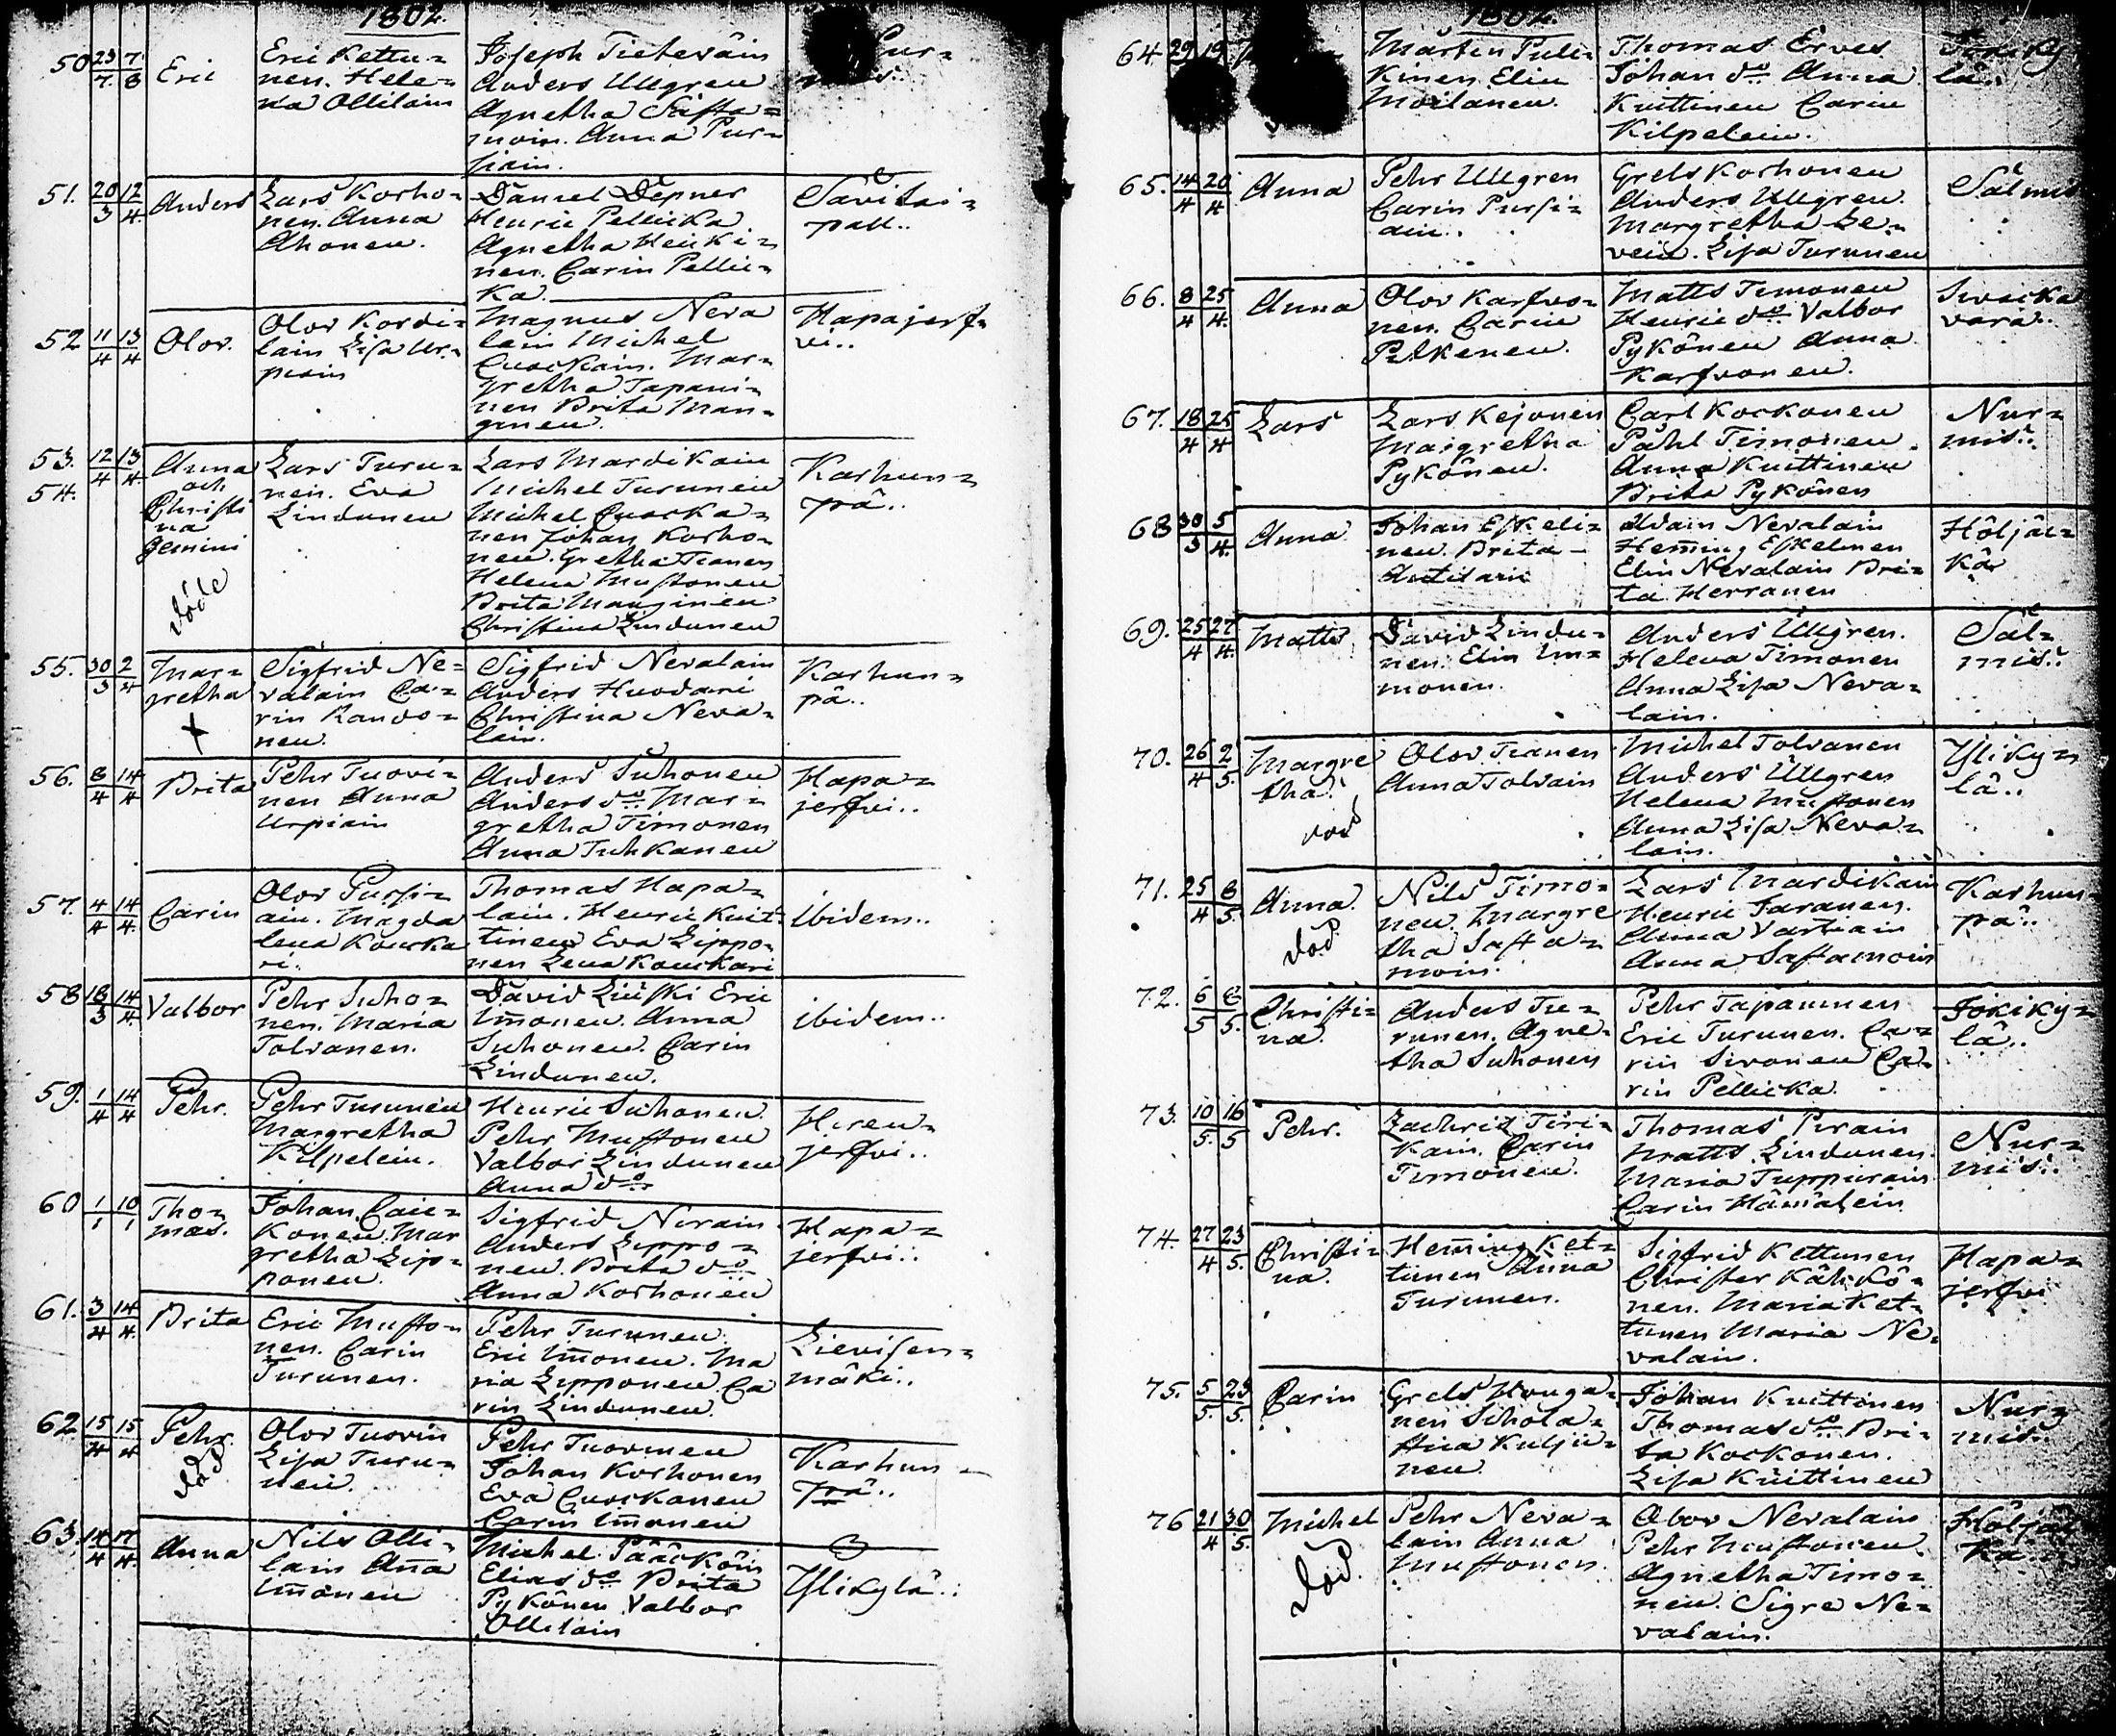 1802.
50 23/7. 7./8 Eric
Eric Kettu=
nen. Hele=
na Ollilain
Joseph Tietevâin
Anders Ullgren
Agnetha Safta=
moin. Anna Pur=
siain.
51. 20/3 12/4. Anders
Lars Korho=
nen. Anna
Ahonen.
Daniel Depner
Henric Pellicka
Agnetha Heicki=
nen. Carin Pellic=
ka.
Savikai=
pall..
52 11/4 13/4 Olov.
Olov Kordi=
lain Lisa Ur=
piain
Magnus Neva
lain Michel
Cuockain. Mar=
gretha Tapani=
nen Brita Man=
ginen.
Hapajerf=
vi..
53. 12/4 13/4
54.
Anna
och
Christi
na
gemini
döde
Lars Turu=
nen. Eva
Lindunen
Lars Mardikain
Michel Turunen
Michel Cuocka=
nen Johan Korho=
nen. Gretha Tianen
Helena Mustonen
Brita Manginen
Christina Lindunen
Karhun=
pä..
55. 30/3 2/4
Mar=
gretha
X
Sigfrid Ne=
valain Ca=
rin Rando=
nen.
Sigfrid Nevalain
Anders Huodari
Christina Neva=
lain.
Karhun=
pä..
56. 8/4 14/4 Brita
Pehr Tuovi=
nen Anna
Urpiain
Anders Suhonen
Anders do Mar=
gretha Timonen
Anna Tuhkanen
Hapa=
jerfvi..
57. 4/4 14/4. Carin
Olov Pursi=
ain. Magda
lena Kouska
ri.
Thomas Hapa=
lain. Henric Kuit=
tinen Eva Lippo=
nen Lena Kouskari
ibidem..
58 18/3 14/4. Valbor
Pehr Suho=
nen. Maria
Tolvanen.
David Liuski Eric
Im̅onen. Anna
Suhonen. Carin
Lindunen.
ibidem..
59. 1/4 14/4 Pehr.
Pehr Turunen
Margretha
Kilpelein.
Henric Suhonen
Pehr Mustonen
Valbor Lindunen
Anna do
Hiren=
jerfvi..
60 1/1 10/1
Tho=
mas.
Johan Caic=
konen. Mar
gretha Lip=
ponen.
Sigfrid Nirain
Anders Lippo=
nen. Brita do
Anna Korhonen
Hapa=
jerfvi..
61. 3/4 14/4. Brita
Eric Musto=
nen. Carin
Turunen.
Pehr Turunen
Eric Im̅onen. Ma
ria Lipponen Ca
rin Lindunen.
Lievisen=
mäki..
62 15/4 15/4 Pehr.
död
Olov Tuovin
Lisa Turu=
nen.
Pehr Tuovinen
Johan Korhonen
Eva Cuockanen
Carin Im̅onen
Karhun=
pä..
63. 14/4 17/4. Anna
Nils Olli=
lain An̅a
Im̅onen
Michel Pääckôin
Elias do Brita
Pykônen Valbor
Ollilain
Ylikylä..
1802.
64 29 19
Mårten Puli=
kinen Elin
Moilanen.
Thomas Erves
Johan do Anna
Kuittinen Carin
Kilpelein.
lä..
65. 14/4 20/4 Anna
Pehr Ullgren
Carin Pursi=
ain..
Grels Korhonen
Anders Ullgren
Margretha Le=
vein. Lisa Turunen
Salmis
66. 8/4 25/4. Anna
Olov Karfvo=
nen. Carin
Pitkenen.
Matts Timonen
Henric do Valbor
Pykônen Anna
Karfvonen.
Sivacka
vara..
67. 18/4 25/4 Lars
Lars Kejonen
Margretha
Pykônen.
Carl Kockonen
Påhl Timonen
Anna Kuittinen
Brita Pykônen
Nur=
mis..
68 30/3 5/4. Anna
Johan Eskeli=
nen. Brita
Antilain
Adam Nevalain
Hem̅ing Eskelinen
Elin Nevalain Bri=
ta Herranen
Höljäc=
kä
69. 25/4 27/4. Matts
David Lindu=
nen. Elin Im=
monen.
Anders Ullgren.
Helena Timonen
Anna Lisa Neva=
lain.
Sal=
mis..
70. 26/4 2/5.
Margre
tha.
död
Olov Tianen
Anna Tolvain
Michel Tolvanen
Anders Ullgren
Helena Mustonen
Anna Lisa Neva=
lain.
Yliky=
lä..
71. 25/4 8/5. Anna.
död.
Nils Timo=
nen. Margre
tha Safta=
moin.
Lars Mardikain
Henric Taranen.
Anna Vartiain
Anna Saftamoin
Karhun=
pä..
72. 6/5 8/5.
Christi=
na.
Anders Tu=
runen. Agne=
tha Suhonen
Pehr Tapaninen
Eric Turunen. Ca=
rin Sivonen Ca=
rin Pellicka.
Jokiky=
lä..
73. 10/5. 16/5 Pehr.
Zachrid Tiri=
kain. Carin
Timonen.
Thomas Pirain
Matts Lindunen.
Maria Tuppurain
Carin Hämälein
Nur=
mis..
74. 27/4 23/5.
Christi=
na.
Hem̅ing Ket=
tunen Anna
Turunen.
Sigfrid Kettunen
Christer Kähkö=
nen. Maria Ket=
tunen Maria Ne=
valain.
Hapa=
jerfvi
75. 5/5. 23/5. Carin
Grels Houga=
nen Schola=
stica Kulju=
nen.
Johan Kuittinen
Thomas do Bri=
ta Kockonen.
Lisa Kuittinen
Nur=
mis..
76 21/4 30/5. Michel
död.
Pehr Neva=
lain Anna
Mustonen.
Olov Nevalain
Pehr Mustonen.
Agnetha Timo=
nen. Sigre Ne=
valain.
Höljäc
kä..